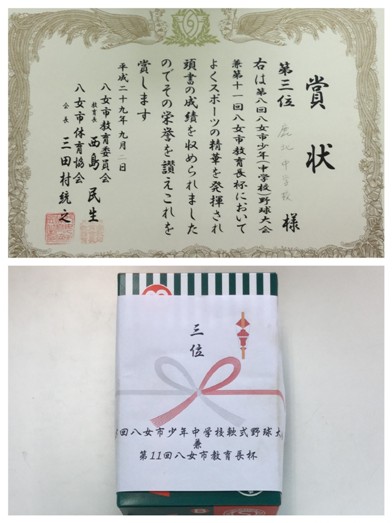 賞状
第三位
中学校 様
右は第八回八女市少年(中学校)野球大会
兼第十一回八女市教育長杯において
よくスポーツの精華を発揮され
頭書の成績を収められました
のでその栄誉を讃えこれを
賞します
平成二十九年九月二日
八女市教育委員会
教育長 西島民生
八女市体育協会
会長 三田村統之
三位
回八女市少年中学校軟式野球大
兼
第11回八女市教育長杯